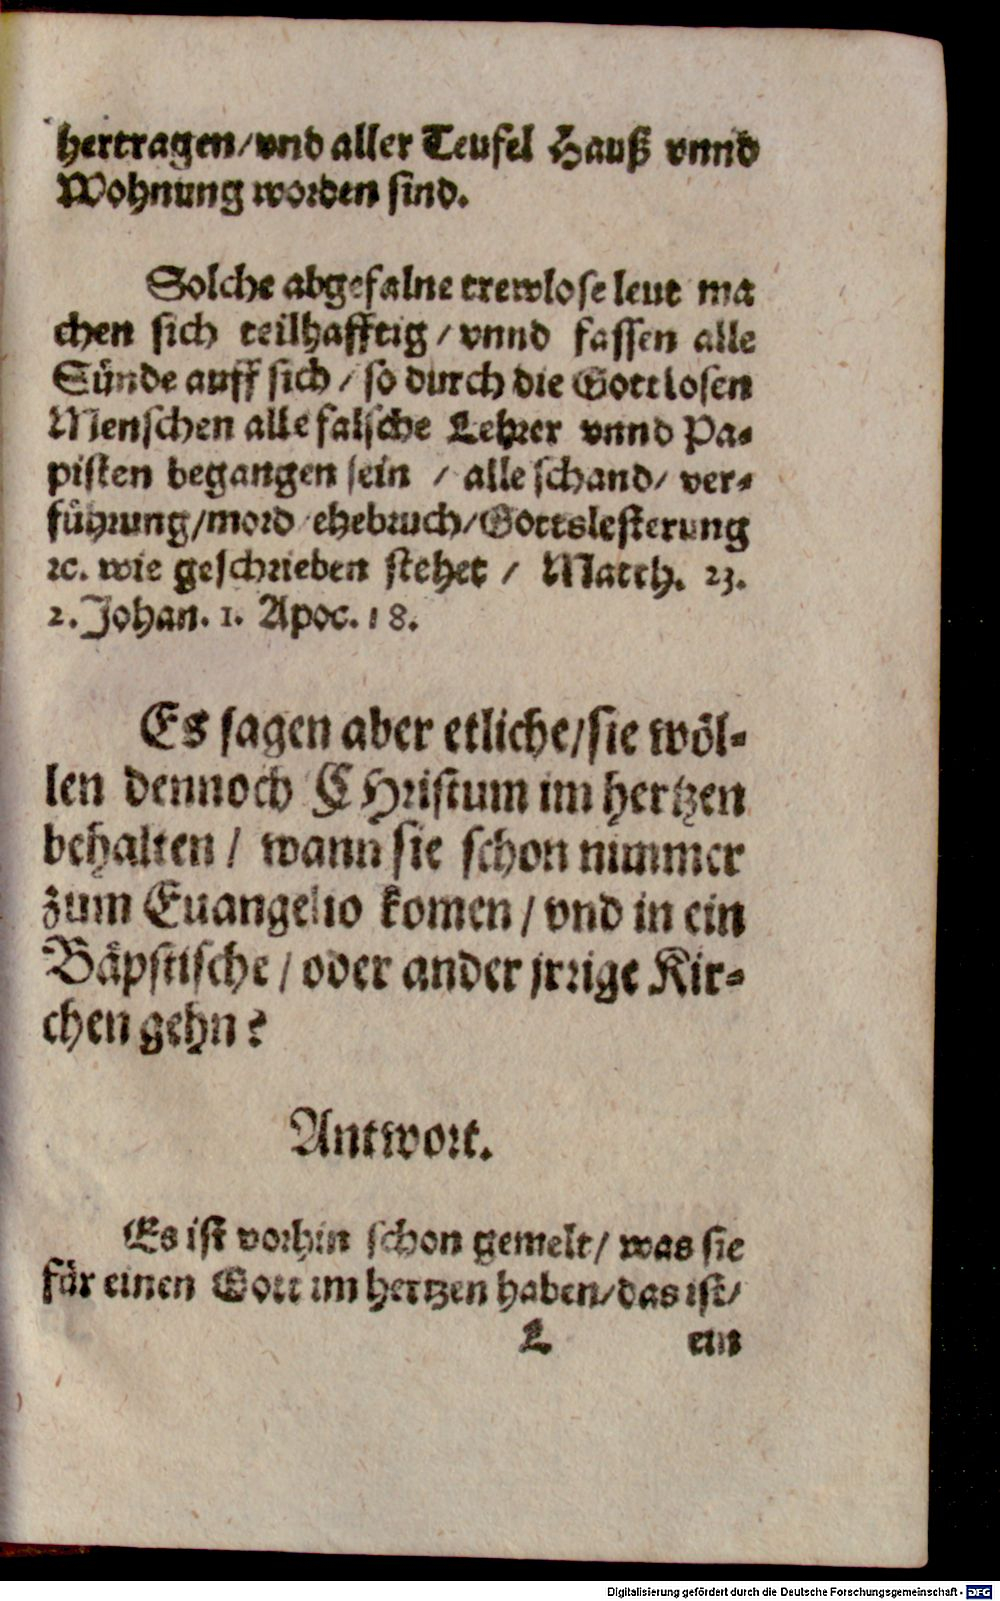 hertragen/vnd aller Teufel Hauß vnnd
Wohnung worden sind.
Solche abgefalne trewlose leut ma
chen sich teilhafftig / vnnd fassen alle
Sünde auff sich / so durch die Gottlosen
Menschen alle falsche Lehrer vnnd Pa-
pisten begangen sein / alle schand/ ver-
führung/mord ehebruch/Gottslesterung
ꝛc. wie geschrieben stehet / Matth. 23.
2. Johan. 1. Apoc. 18.
Es sagen aber etliche/sie wöl-
len dennoch CHristum im hertzen
behalten / wann sie schon nimmer
zum Euangelio komen / vnd in ein
Bäpstische / oder ander jrrige Kir-
chen gehn?
Antwort.
Es ist vorhin schon gemelt/ was sie
für einen Gott im hertzen haben/das ist/
L ein
Digitalisierung gefördert durch die Deutsche Forschungsgemeinschaft - DFG